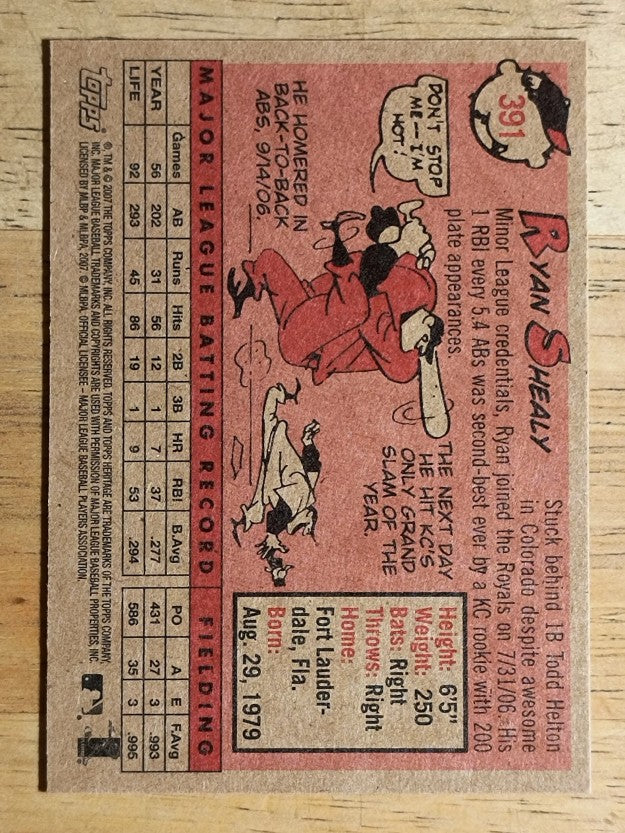 391
RYAN SHEALY
Stuck behind 1B Todd Helton
in Colorado despite awesome
Minor League credentials, Ryan joined the Royals on 7/31/06. His
1 RBI every 5.4 ABs was second-best ever by a KC rookie with 200
plate appearances
DON'T STOP
ME—I'M
HOT!
HE HOMERED IN
BACK-TO-BACK
ABS, 9/14/06.
THE NEXT DAY
HE HIT KC'S
ONLY GRAND
SLAM OF THE
YEAR.
Height: 6'5"
Weight: 250
Bats: Right
Throws: Right
Home:
Fort Lauder-
dale, Fla.
Born:
Aug. 29, 1979
MAJOR LEAGUE BATTING RECORD FIELDING
Games AB Runs Hits 2B 3B HR RBI B.Avg PO A E F.Avg
YEAR 56 202 31 56 12 1 7 37 .277 431 27 3 .993
LIFE 92 293 45 86 19 1 9 53 .294 586 35 3 .995
topps
® TM & © 2007 THE TOPPS COMPANY, INC. ALL RIGHTS RESERVED. TOPPS AND TOPPS HERITAGE ARE TRADEMARKS OF THE TOPPS COMPANY,
INC. MAJOR LEAGUE BASEBALL TRADEMARKS AND COPYRIGHTS ARE USED WITH PERMISSION OF MAJOR LEAGUE BASEBALL PROPERTIES, INC.
LICENSED BY MLBP & MLBPA, 2007. © MLBPA, OFFICIAL LICENSEE – MAJOR LEAGUE BASEBALL PLAYERS ASSOCIATION.